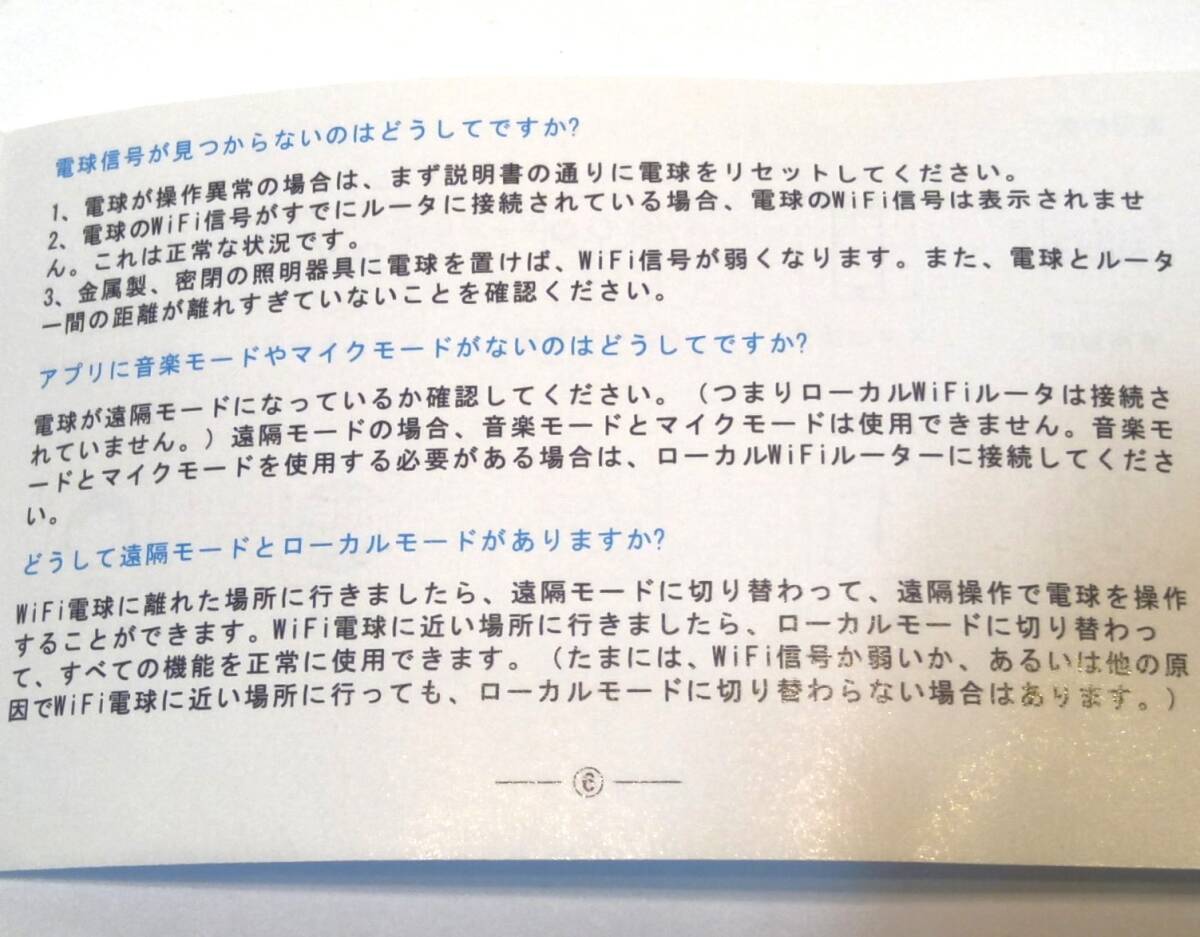 電球信号が見つからないのはどうしてですか?
1、電球が操作異常の場合は、まず説明書の通りに電球をリセットしてください。
2、電球のWiFi信号がすでにルータに接続されている場合、電球のWiFi信号は表示されませ
ん。これは正常な状況です。
3、金属製、密閉の照明器具に電球を置けば、WiFi信号が弱くなります。また、電球とルータ
ー間の距離が離れすぎていないことを確認ください。
アプリに音楽モードやマイクモードがないのはどうしてですか?
電球が遠隔モードになっているか確認してください。（つまりローカルWiFiルータは接続さ
れていません。）遠隔モードの場合、音楽モードとマイクモードは使用できません。音楽モ
ードとマイクモードを使用する必要がある場合は、ローカルWiFiルーターに接続してくださ
い。
どうして遠隔モードとローカルモードがありますか?
WiFi電球に離れた場所に行きましたら、遠隔モードに切り替わって、遠隔操作で電球を操作
することができます。WiFi電球に近い場所に行きましたら、ローカルモードに切り替わっ
て、すべての機能を正常に使用できます。（たまには、WiFi信号か弱いか、あるいは他の原
因でWiFi電球に近い場所に行っても、ローカルモードに切り替わらない場合はあります。）